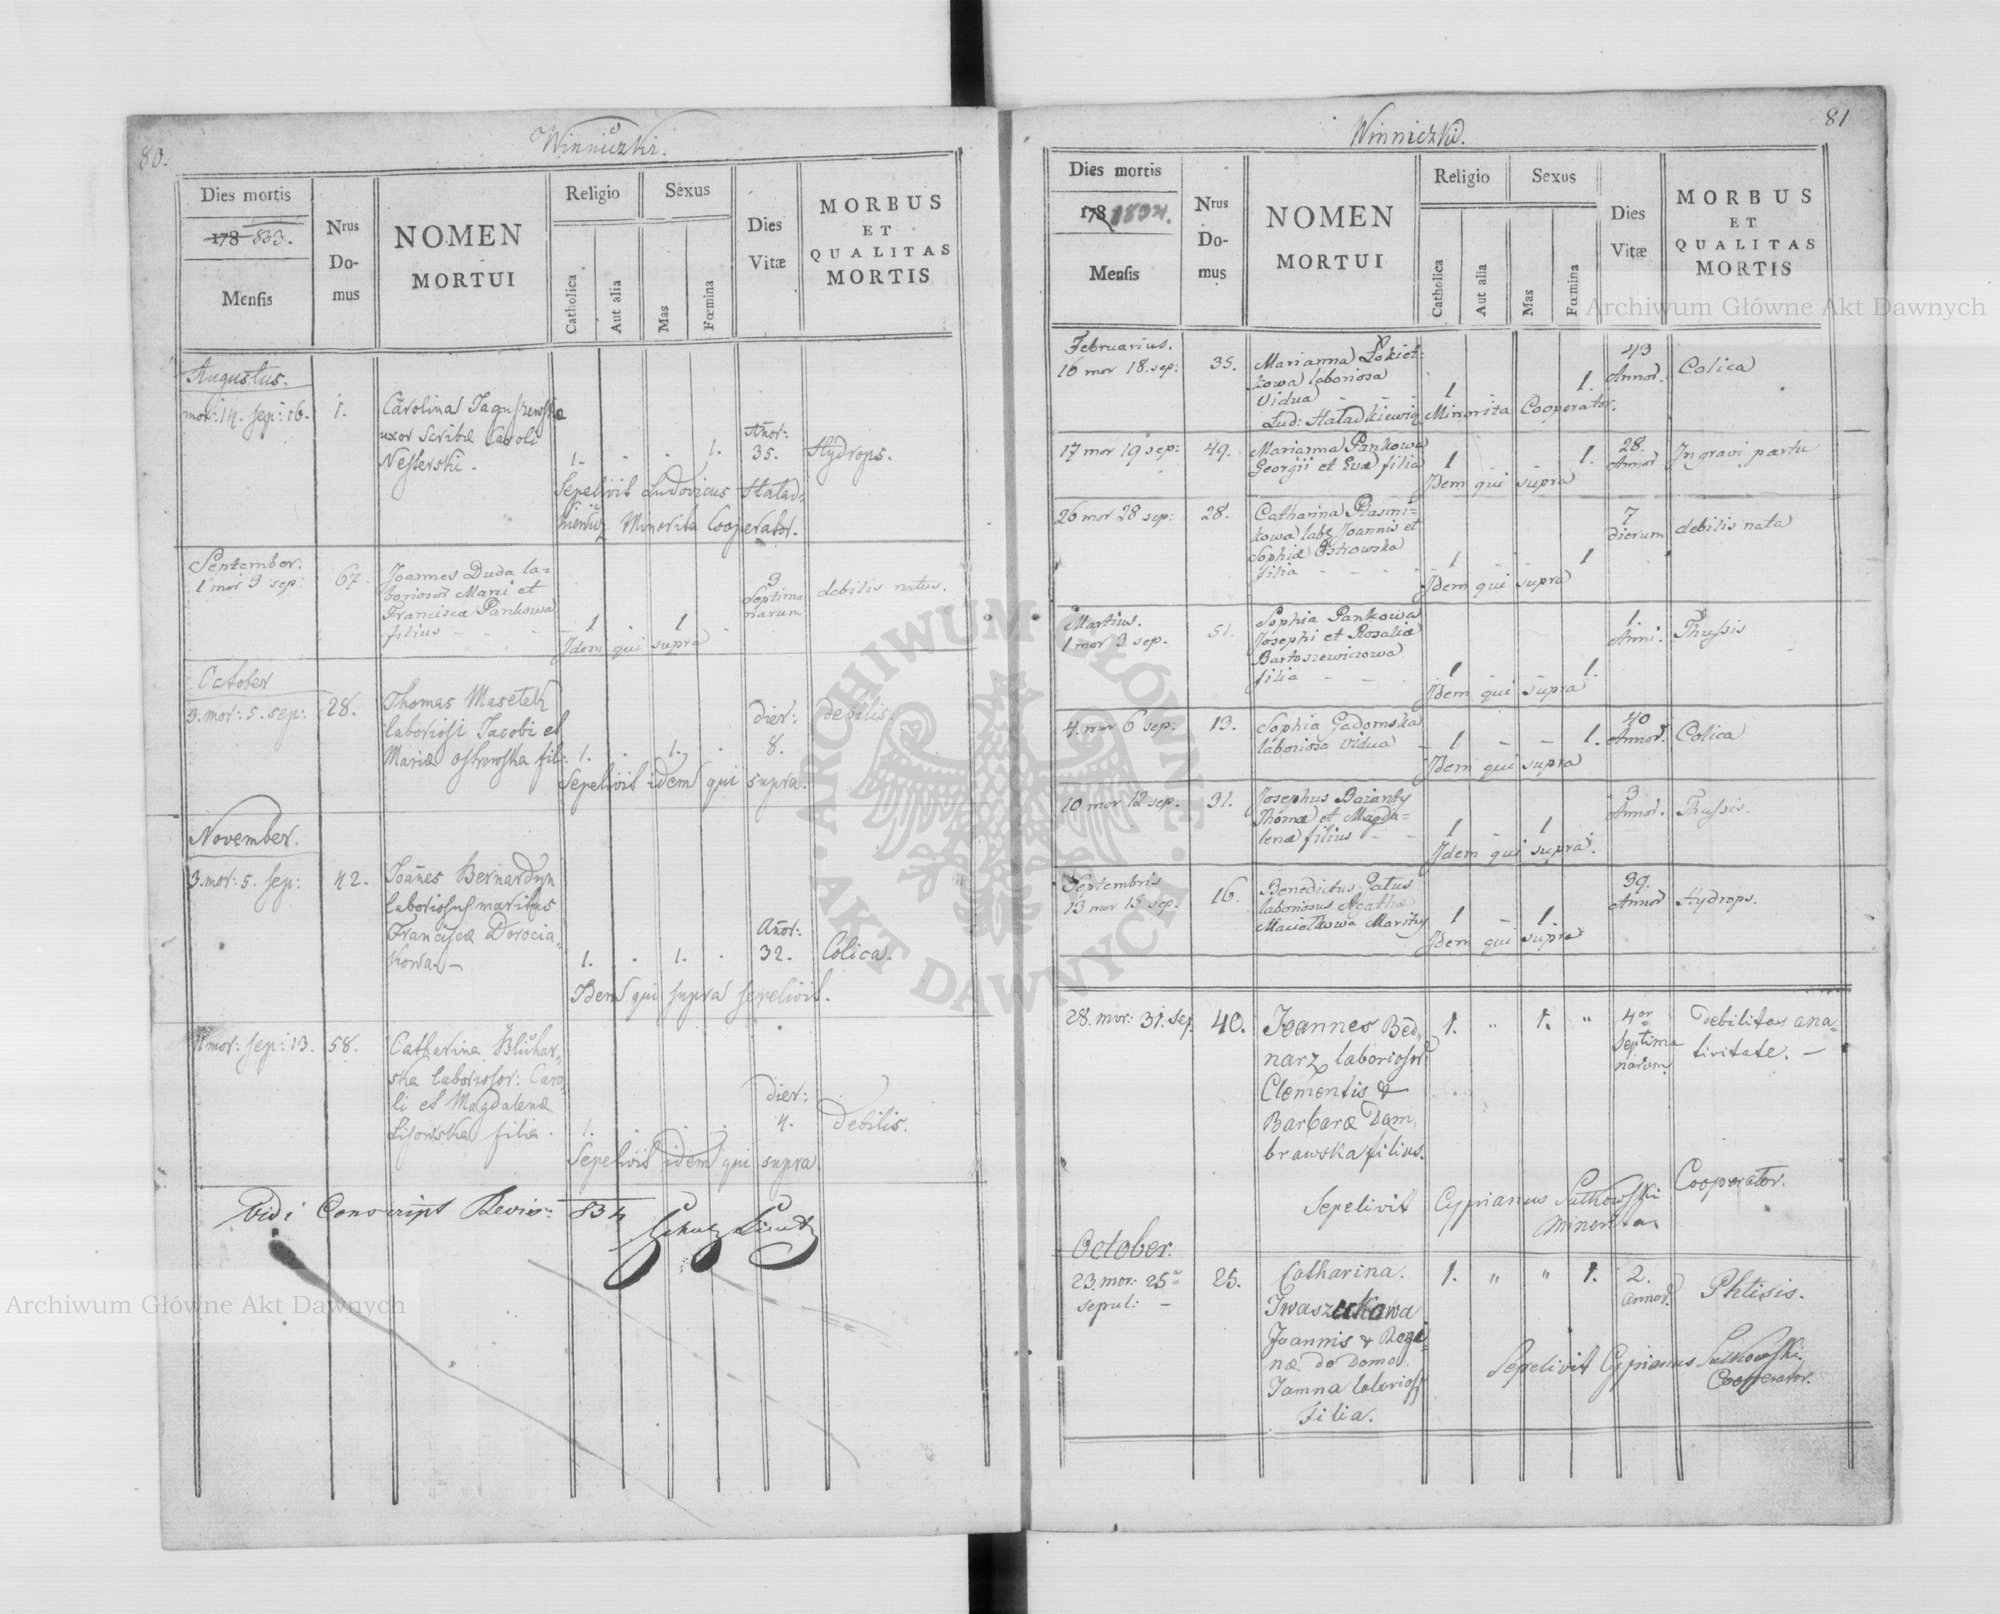 80.
Winniczki.
Dies mortis
178 833.
Mensis
Nrus
Do-
mus
NOMEN
MORTUI
Religio
Catholica
Aut alia
Sexus
Mas
Fœmina
Dies
Vitæ
MORBUS
ET
QUALITAS
MORTIS
Augustus.
mor: 14. sep: 16.
1.
Carolina
uxor Scribæ Caroli
Nesterski.
1. . . 1.
Añor:
35.
Hydrops.
Sepelivit Ludovicus Hatad-
kiewicz Minorita Cooperator.
September.
1 mor 3 sep:
67.
Joannes Duda la-
boriosor
Francisca Pankowa
filius - - -
1 . 1 .
3
Septima
narum
debilis natus.
Idem qui supra
October
3. mor: 5. sep:
28.
Thomas Masetek
laboriosi Jacobi et
Mariæ Ostrowska fil:
1. . 1. .
dier:
8.
debilis.
Sepelivit idem qui supra.
November.
3. mor: 5. sep:
42.
Joānes Bernardyn
laboriosus maritus
Franciscæ Derocia-
kowa. -
1. . 1. .
Añor:
32.
Colica.
Idem qui supra sepelivit.
11 mor: sep: 13.
58.
Catharina Kuchar-
ska laborosior: Caro-
li et Magdalenæ
Lisowska filia.
1. . . .
dier:
4.
Debilis.
Sepelivit idem qui supra.
Vidi Conscript Revis: 834
81
Winniczki.
Dies mortis
178 1834.
Mensis
Nrus
Do-
mus
NOMEN
MORTUI
Religio
Catholica
Aut alia
Sexus
Mas
Fœmina
Dies
Vitæ
MORBUS
ET
QUALITAS
MORTIS
Februarius.
16 mor 18. sep:
35.
Marianna Łokiet-
kowa laboriosa
Vidua - -
1 - - 1.
43
Annor.
Colica
Lud: Hatadkiewicz Minorita Cooperator.
17 mor 19 sep:
49.
Marianna Pankowa
Georgii et Evæ filia
1 - - 1.
28.
Annor
In gravi partu
Idem qui supra
26 mor 28 sep:
28.
Catharina
kowa Joannis et
Sophiæ Ostrowska
filia - - -
1 - - 1
7
dierum
debilis nata
Idem qui supra
Martius.
1 mor 3 sep.
51.
Sophia Pankowa
Josephi et Rosaliæ
Bartoszewiczowa
filia - -
1 - - 1.
1
Anni.
Thussis
Idem qui supra
4. mor 6 sep:
13.
Sophia Gadomska
laboriosa Vidua -
1 - - 1.
40
Annor.
Colica
Idem qui supra
10 mor 12 sep.
31.
Josephus
Thomæ et Magda-
lenæ filius - -
1 - 1
3
Annor.
Thussis.
Idem qui supra.
Septembris
13 mor 15 sep.
16.
Benedictus Patus
laboriosus Agathæ
Maciołkowa Maritus
1 - 1.
39.
Annor
Hydrops.
Idem qui supra
28. mor: 31. Sep.
40.
Joannes Bed-
narz laboriosor
Clementis &
Barbaræ Dam-
brawska filius.
1. " 1. "
4or
Septima
narum.
Debilitas a na-
tivitate. -
Sepelivit Cyprianus Sutkowski Cooperator.
Minorita
October.
23. mor: 25
sepul: -
25.
Catharina.
Iwaszukowa
Joannis & Regi-
næ de Domo
Jamna laborios
filia.
1. " " 1.
2.
annor.
Phtisis.
Sepelivit Cyprianus Sutkowski.
Cooperator.
Archiwum Główne Akt Dawnych
Archiwum Główne Akt Dawnych
ARCHIWUM GŁÓWNE
AKT DAWNYCH